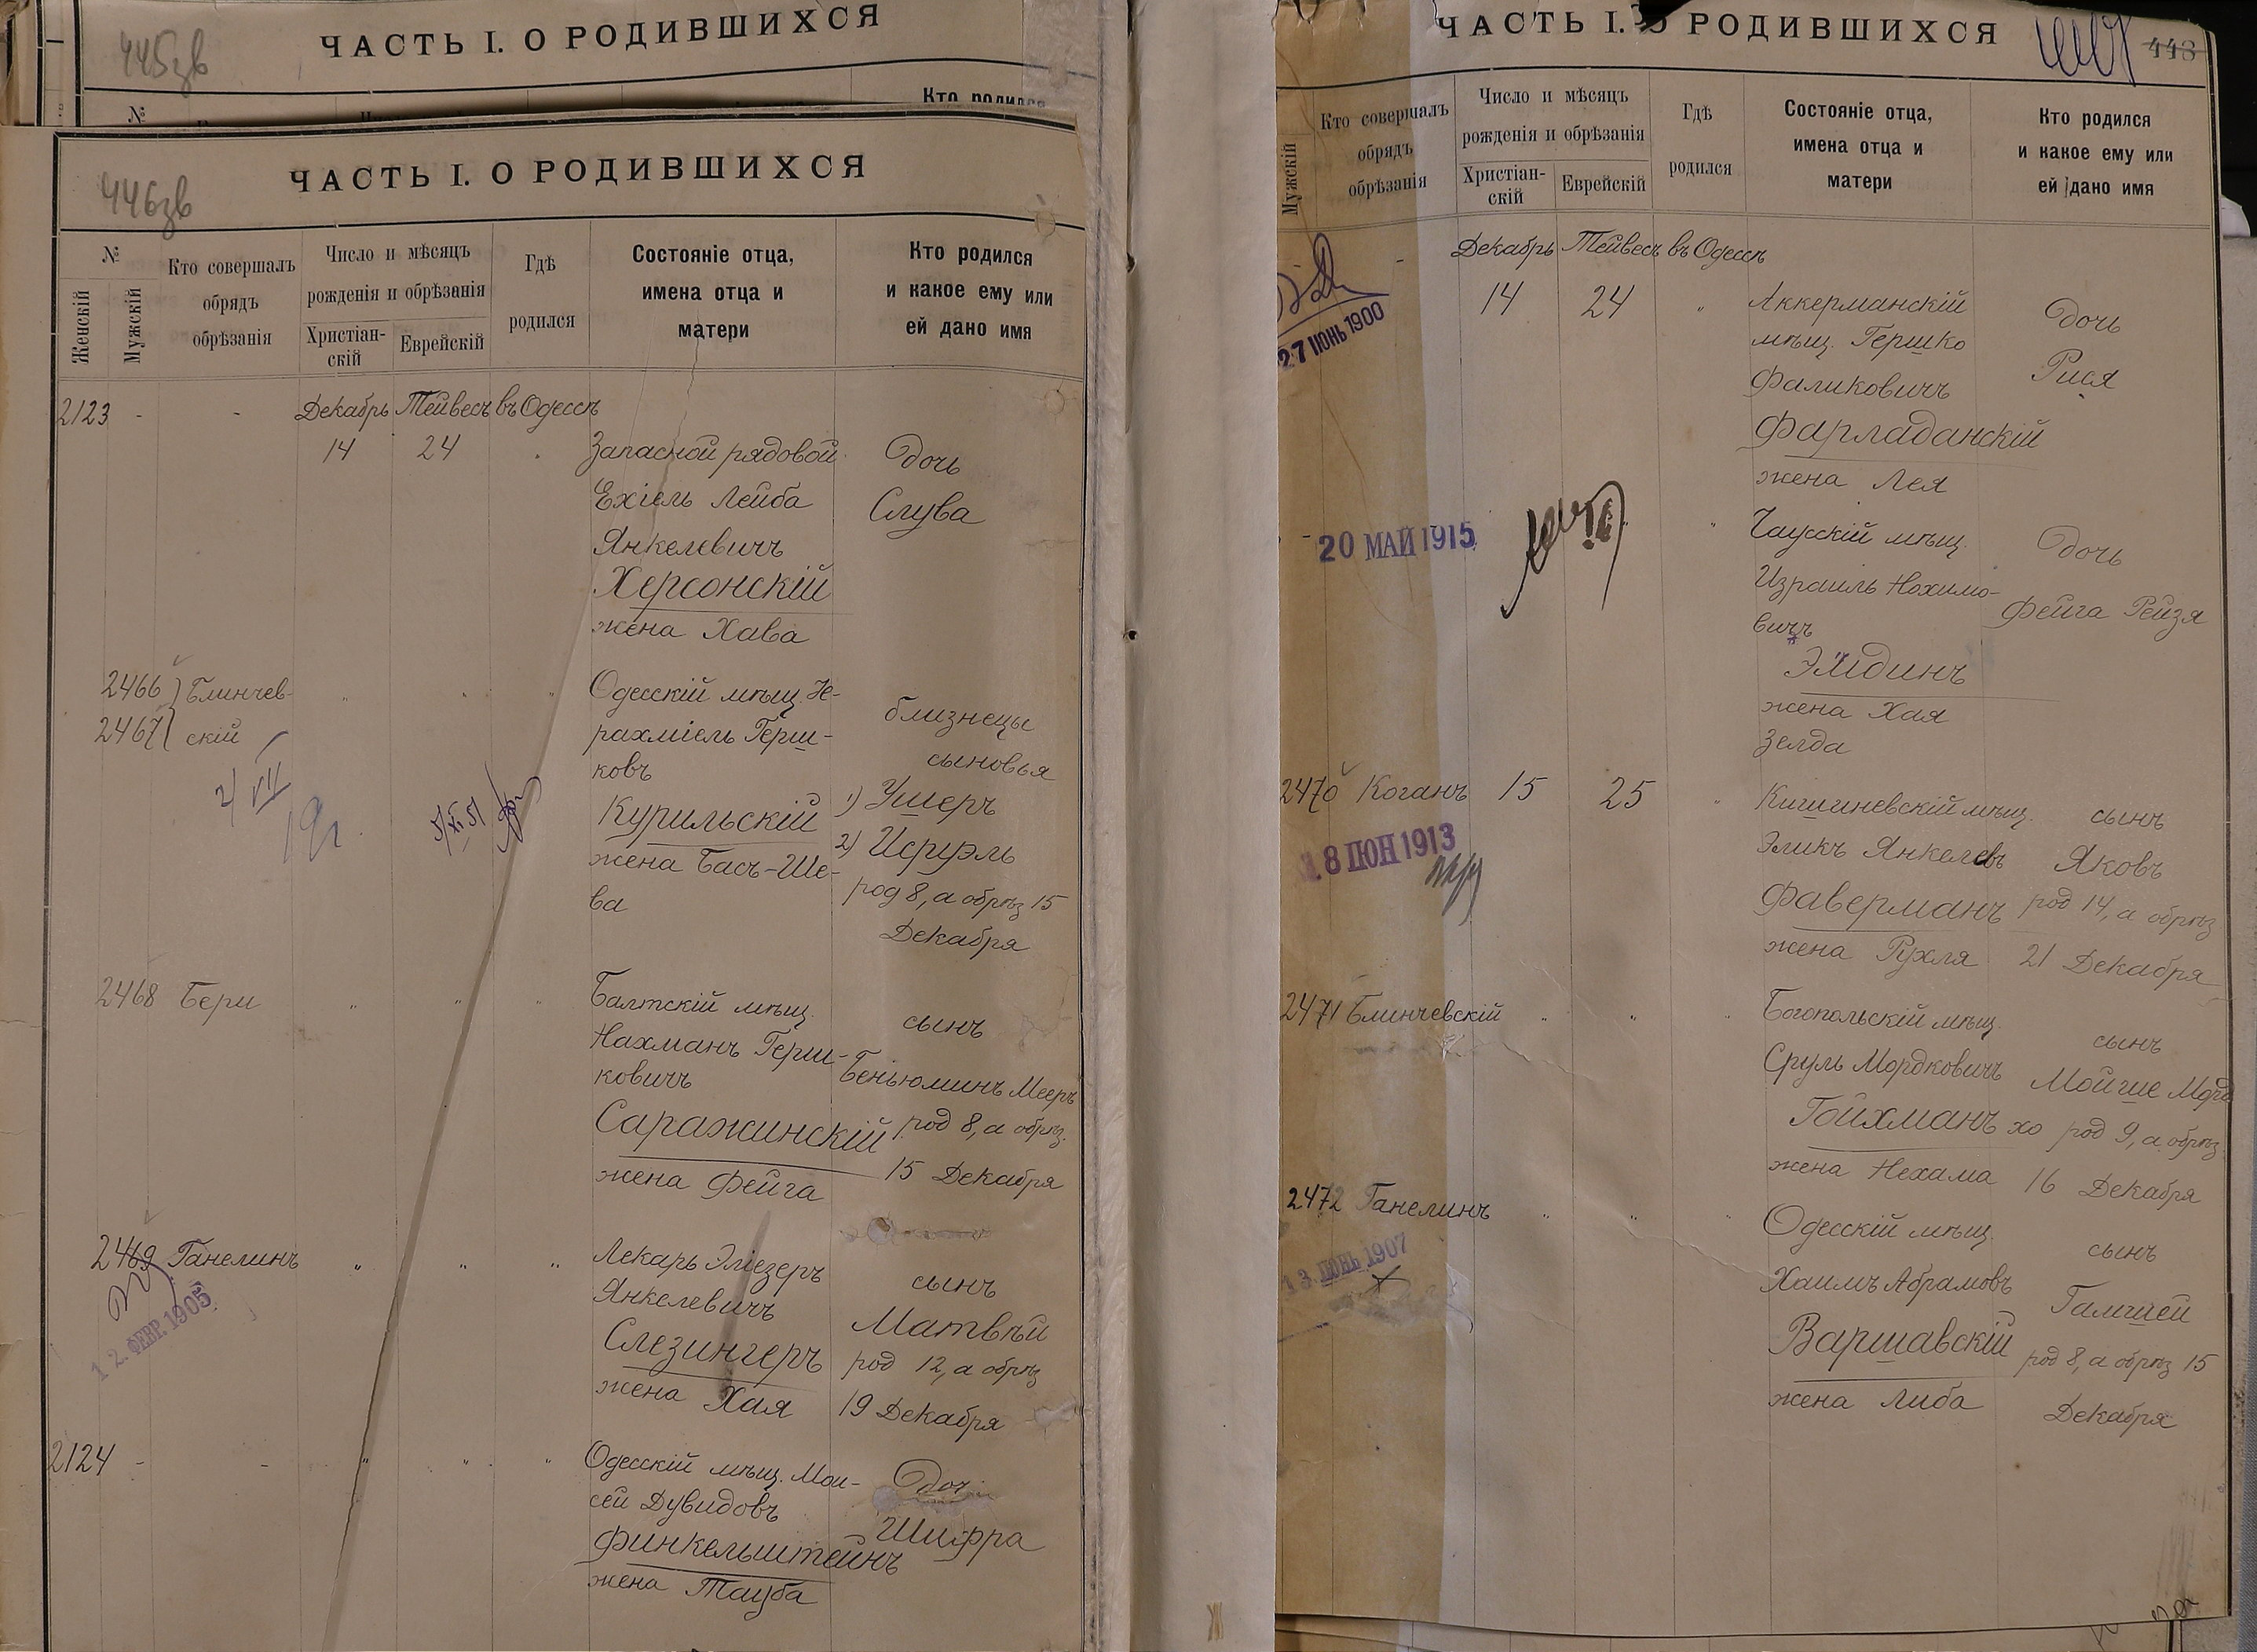 445зв
ЧАСТЬ I. О РОДИВШИХСЯ
№
Кто родился
446зв
ЧАСТЬ I. О РОДИВШИХСЯ
№
Женскій
Мужскій
Кто совершалъ
обрядъ
обрѣзанія
Число и мѣсяцъ
рожденія и обрѣзанія
Христіан-
скій
Еврейскій
Гдѣ
родился
Состояніе отца,
имена отца и
матери
Кто родился
и какое ему или
ей дано имя
2123 - - Декабрь Тейвесъ въ Одессѣ
14 24 Запасной рядовой Дочь
Ехіель Лейба Слува
Янкелевичъ
Херсонскій
жена Хава
2466 Блинчев- Одесскій мѣщ. Іе- близнецы
2467 скій рахміель Герш- сыновья
ковъ 1) Ушеръ
Курильскій 2) Исруэль
жена Бась-Ше- род 8, а обрѣз 15
ва Декабря
2468 Бери " " " Балтскій мѣщ. сынъ
Нахманъ Герш- Беньюминъ Мееръ
ковичъ род 8, а обрѣз.
Саражинскій 15 Декабря
жена Фейга
2469 Ганелинъ " " " Лекарь Эліезеръ сынъ
Янкелевичъ Матвѣй
Слезингеръ род 12, а обрѣз
жена Хая 19 Декабря
12. ФЕВР. 1905
2124 - - " " " Одесскій мѣщ. Мои- Дочь
сей Дувидовъ Шифра
Финкельштейнъ
жена Тауба
ЧАСТЬ I. О РОДИВШИХСЯ
443
Мужскій
Кто совершалъ
обрядъ
обрѣзанія
Число и мѣсяцъ
рожденія и обрѣзанія
Христіан-
скій
Еврейскій
Гдѣ
родился
Состояніе отца,
имена отца и
матери
Кто родился
и какое ему или
ей дано имя
- - Декабрь Тейвесъ въ Одессѣ
14 24 " Аккерманскій Дочь
мѣщ. Гершко Рися
Фаликовичъ
Фарладанскій
жена Лея
27 ІЮНЬ 1900
- " Чаусскій мѣщ. Дочь
Израиль Нохимо- Фейга Рейзя
вичъ
жена Хая
Зелда
20 МАЙ 1915
2470 Коганъ 15 25 " Кишиневскій мѣщ. сынъ
Эликъ Янкелевъ Яковъ
Фаверманъ род 14, а обрѣз
жена Рухля 21 Декабря
18 ІЮН 1913
2471 Блинчевскій " " " Богопольскій мѣщ. сынъ
Сруль Мордковичъ Мойше Морд
Гойхманъ хо род 9, а обрѣз
жена Нехама 16 Декабря
2472 Ганелинъ " " " Одесскій мѣщ. сынъ
Хаимъ Абрамовъ Гамшей
Варшавскій род 8, а обрѣз 15
жена Либа Декабря
13 ІЮНЬ 1907